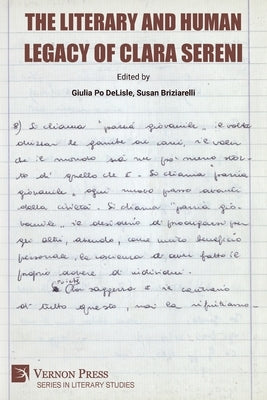 THE LITERARY AND HUMAN
LEGACY OF CLARA SERENI
Edited by
Giulia Po DeLisle, Susan Briziarelli
8) Si chiama "pazzia giovanile" il voler
drizzare le gambe ai cani, il voler
che il mondo sia un po' meno stor-
to di quello che è. Si chiama "pazzia
giovanile" ogni nuovo passo avanti
della civiltà. Si chiama "pazzia gio-
vanile" il desiderio di procurarsi per
gli altri, avendo, come unico beneficio
personale, la coscienza di aver fatto il
proprio dovere di individui.
società
Chi saggezza è il contrario
di tutto questo, noi la rifiutiamo
VERNON PRESS
SERIES IN LITERARY STUDIES